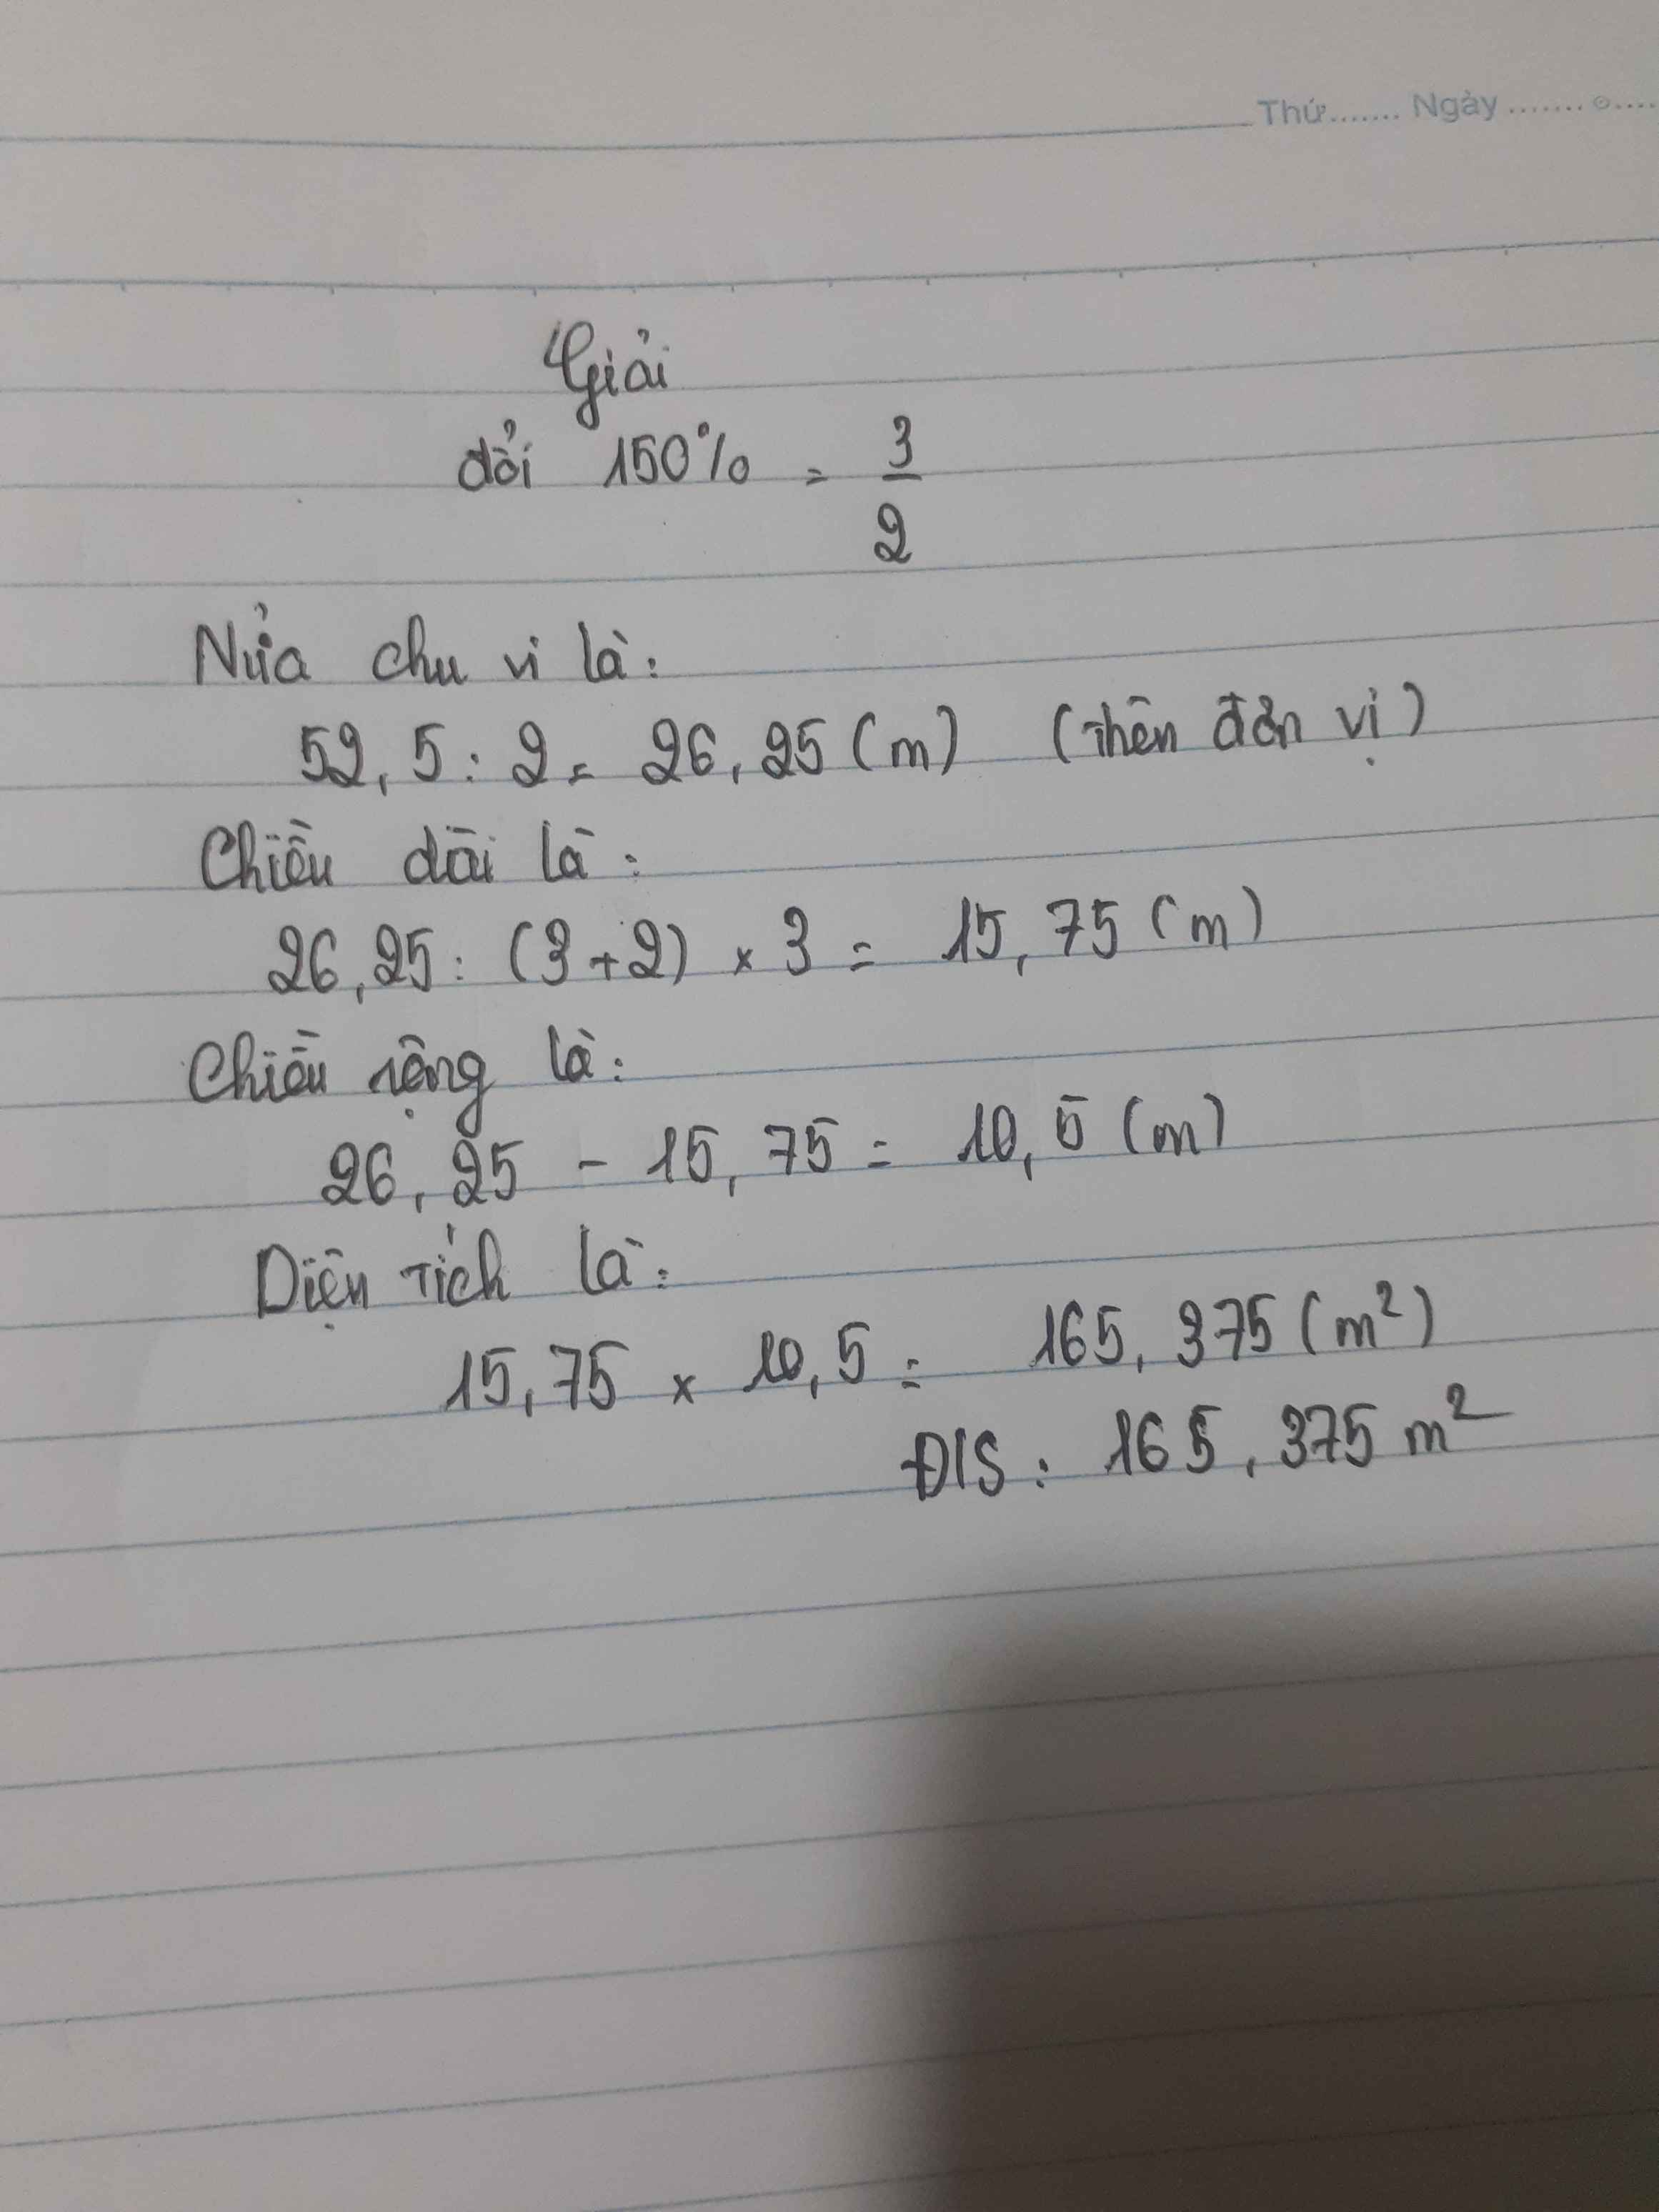 Thứ....... Ngày ....... 
Giải
đổi 150% = 3/2
Nửa chu vi là:
52,5 : 2 = 26,25 (m) (thên đơn vị)
Chiều dài là:
26,25 : (3+2) × 3 = 15,75 (m)
Chiều rộng là:
26,25 - 15,75 = 10,5 (m)
Diện tích là:
15,75 × 10,5 = 165,375 (m²)
Đ/S : 165,375 m²